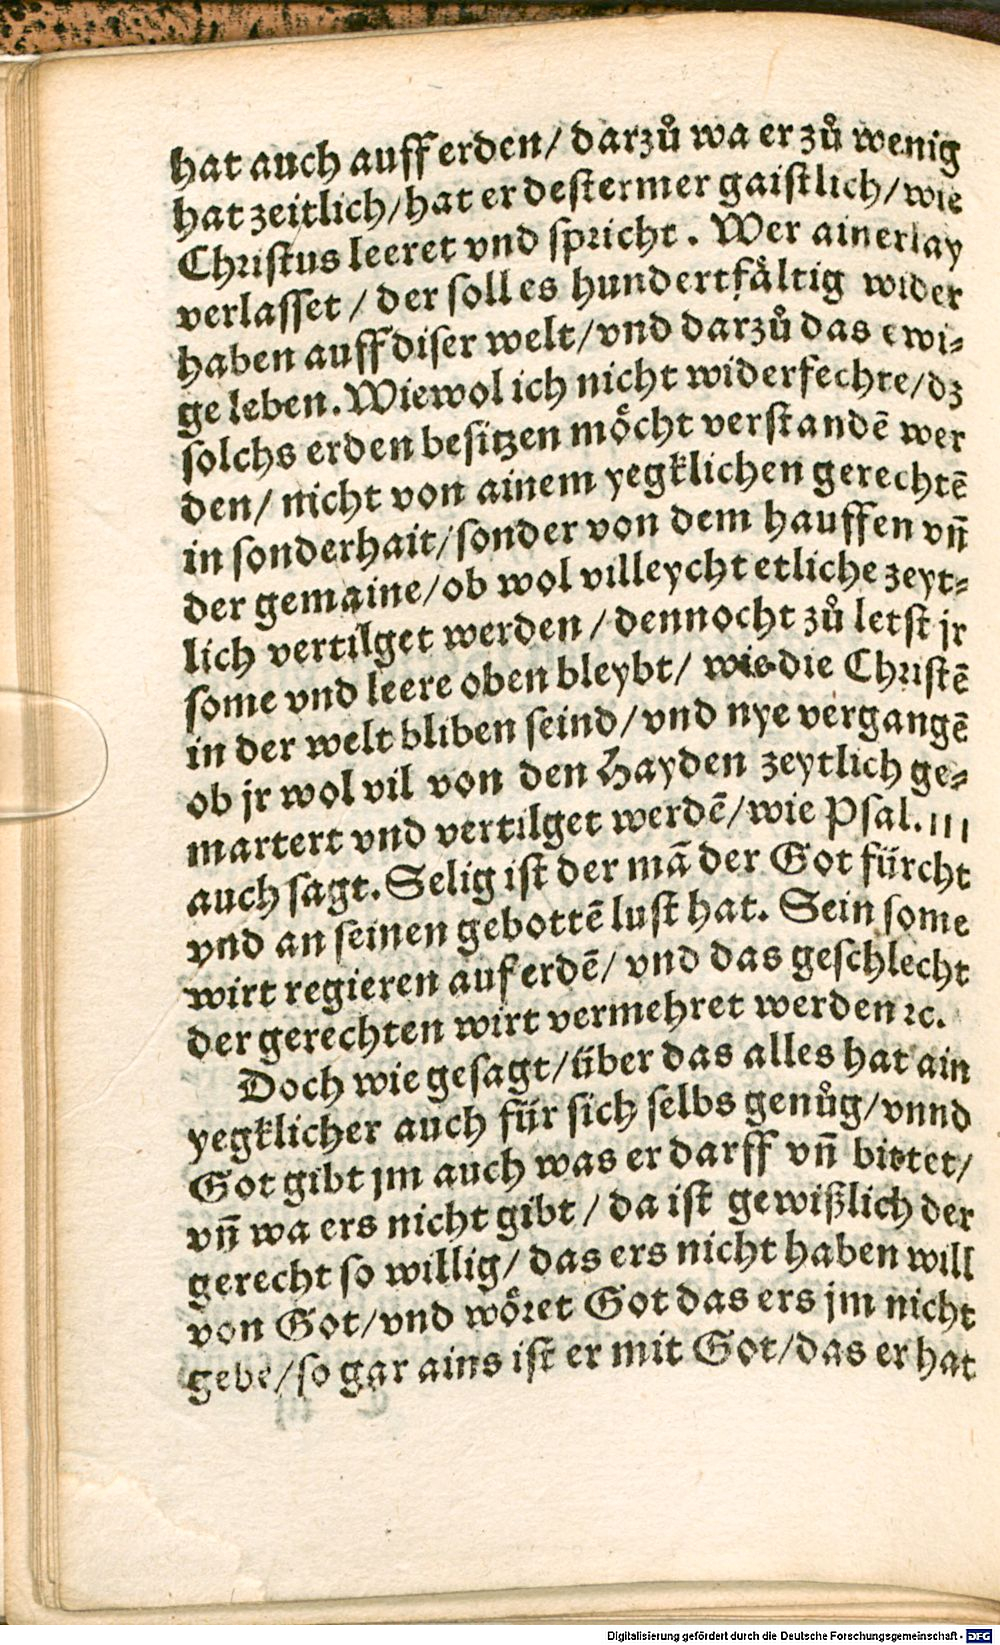 hat auch auff erden/ darzů wa er zů wenig
hat zeitlich/hat er destermer gaistlich/wie
Christus leeret vnd spricht. Wer ainerlay
verlasset / der soll es hundertfåltig wider
haben auff diser welt/vnd darzů das ewi-
ge leben. Wiewol ich nicht widerfechte/dz
solchs erden besitzen möcht verstandē wer
den/ nicht von ainem yegklichen gerechtē
in sonderhait/sonder von dem hauffen vñ
der gemaine/ob wol villeycht etliche zeyt-
lich vertilget werden / dennocht zů letst jr
some vnd leere oben bleybt/ wie die Christē
in der welt bliben seind/vnd nye vergangē
ob jr wol vil von den Hayden zeytlich ge-
martert vnd vertilget werdē/wie Psal. 111
auch sagt. Selig ist der mā der Got fürcht
vnd an seinen gebottē lust hat. Sein some
wirt regieren auf erdē/ vnd das geschlecht
der gerechten wirt vermehret werden ꝛc.
Doch wie gesagt/über das alles hat ain
yegklicher auch für sich selbs genůg/vnnd
Got gibt jm auch was er darff vñ bittet/
vñ wa ers nicht gibt / da ist gewißlich der
gerecht so willig/ das ers nicht haben will
von Got/vnd wöret Got das ers jm nicht
gebe/so gar ains ist er mit Got/das er hat
Digitalisierung gefördert durch die Deutsche Forschungsgemeinschaft - DFG